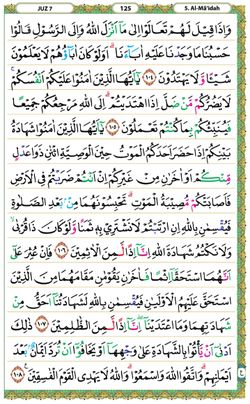 JUZ 7 125 5. Al-Mā'idah
وَإِذَا قِيلَ لَهُمْ تَعَالَوْا۟ إِلَىٰ مَآ أَنزَلَ ٱللَّهُ وَإِلَى ٱلرَّسُولِ قَالُوا۟
حَسْبُنَا مَا وَجَدْنَا عَلَيْهِ ءَابَآءَنَآ ۚ أَوَلَوْ كَانَ ءَابَآؤُهُمْ لَا يَعْلَمُونَ
شَيْـًٔا وَلَا يَهْتَدُونَ ١٠٤ يَـٰٓأَيُّهَا ٱلَّذِينَ ءَامَنُوا۟ عَلَيْكُمْ أَنفُسَكُمْ ۖ
لَا يَضُرُّكُم مَّن ضَلَّ إِذَا ٱهْتَدَيْتُمْ ۚ إِلَى ٱللَّهِ مَرْجِعُكُمْ جَمِيعًا
فَيُنَبِّئُكُم بِمَا كُنتُمْ تَعْمَلُونَ ١٠٥ يَـٰٓأَيُّهَا ٱلَّذِينَ ءَامَنُوا۟ شَهَـٰدَةُ
بَيْنِكُمْ إِذَا حَضَرَ أَحَدَكُمُ ٱلْمَوْتُ حِينَ ٱلْوَصِيَّةِ ٱثْنَانِ ذَوَا عَدْلٍ
مِّنكُمْ أَوْ ءَاخَرَانِ مِنْ غَيْرِكُمْ إِنْ أَنتُمْ ضَرَبْتُمْ فِى ٱلْأَرْضِ
فَأَصَـٰبَتْكُم مُّصِيبَةُ ٱلْمَوْتِ ۚ تَحْبِسُونَهُمَا مِنۢ بَعْدِ ٱلصَّلَوٰةِ
فَيُقْسِمَانِ بِٱللَّهِ إِنِ ٱرْتَبْتُمْ لَا نَشْتَرِى بِهِۦ ثَمَنًا وَلَوْ كَانَ ذَا قُرْبَىٰ ۙ
وَلَا نَكْتُمُ شَهَـٰدَةَ ٱللَّهِ إِنَّآ إِذًا لَّمِنَ ٱلْـَٔاثِمِينَ ١٠٦ فَإِنْ عُثِرَ عَلَىٰٓ
أَنَّهُمَا ٱسْتَحَقَّآ إِثْمًا فَـَٔاخَرَانِ يَقُومَانِ مَقَامَهُمَا مِنَ ٱلَّذِينَ
ٱسْتَحَقَّ عَلَيْهِمُ ٱلْأَوْلَيَـٰنِ فَيُقْسِمَانِ بِٱللَّهِ لَشَهَـٰدَتُنَآ أَحَقُّ مِن
شَهَـٰدَتِهِمَا وَمَا ٱعْتَدَيْنَآ إِنَّآ إِذًا لَّمِنَ ٱلظَّـٰلِمِينَ ١٠٧ ذَٰلِكَ
أَدْنَىٰٓ أَن يَأْتُوا۟ بِٱلشَّهَـٰدَةِ عَلَىٰ وَجْهِهَآ أَوْ يَخَافُوٓا۟ أَن تُرَدَّ أَيْمَـٰنٌۢ بَعْدَ
أَيْمَـٰنِهِمْ ۗ وَٱتَّقُوا۟ ٱللَّهَ وَٱسْمَعُوا۟ ۗ وَٱللَّهُ لَا يَهْدِى ٱلْقَوْمَ ٱلْفَـٰسِقِينَ ١٠٨